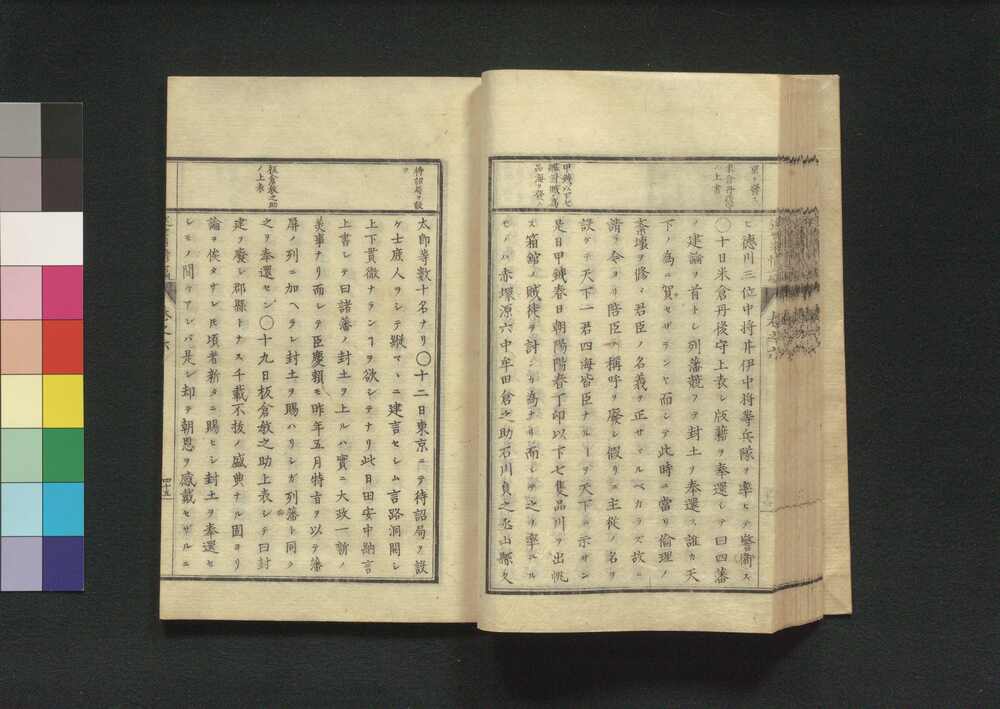 ヒ德川三位中将井伊中将等兵隊ヲ率ヒテ警衞ス
〇十日米倉丹後守上表シ版籍ヲ奉還シテ曰四藩
ノ建論ヲ首トシ列藩競フテ封土ヲ奉還ス誰カ天
下ノ爲ニ賀セザランヤ而シテ此時ニ當リ倫理ノ
紊壞ヲ修メ君臣ノ名義ヲ正サヾルベカラズ故ニ
請フ今ヨリ陪臣ノ稱呼ヲ廢シ假リニ主從ノ名ヲ
設ケテ天下一君四海皆臣ナルヿヲ天下ニ示サン
是日甲鐵春日朝陽陽春丁卯以下七隻品川ヲ出帆
ス箱館ノ賊徒ヲ討ンカ爲ナリ而シテ之ヲ率ユル
モノハ赤塚源六中牟田倉之助石川貞之丞山縣久
米倉丹後守
ノ上書
甲鐵以下七
艦討賊ノ爲
品海ヲ發ス
太郎等數十名ナリ〇十二日東京ニテ待詔局ヲ設
ケ士庶人ヲシテ猥マヽニ建言セシム言路洞開シ
上下貫徹ナランヿヲ欲シテナリ此日田安中納言
上書シテ曰諸藩ノ封土ヲ上ルハ實ニ大政一新ノ
美事ナリ而シテ臣慶頼モ昨年五月特旨ヲ以テ藩
屏ノ列ニ加ヘラレ封土ヲ賜ハリシガ列藩ト同ク
之ヲ奉還セン〇十九日板倉敏之助上表シテ曰封
建ヲ廢シ郡縣トナス千載不拔ノ盛典ナル固ヨリ
論ヲ俟タサレ𪜈頃者新タニ賜ヒシ封土ヲ奉還セ
シモノ間々アレバ是レ却テ朝恩ヲ感戴セザルニ
待詔局ヲ設
ク
板倉敏之助
ノ上表
四十五